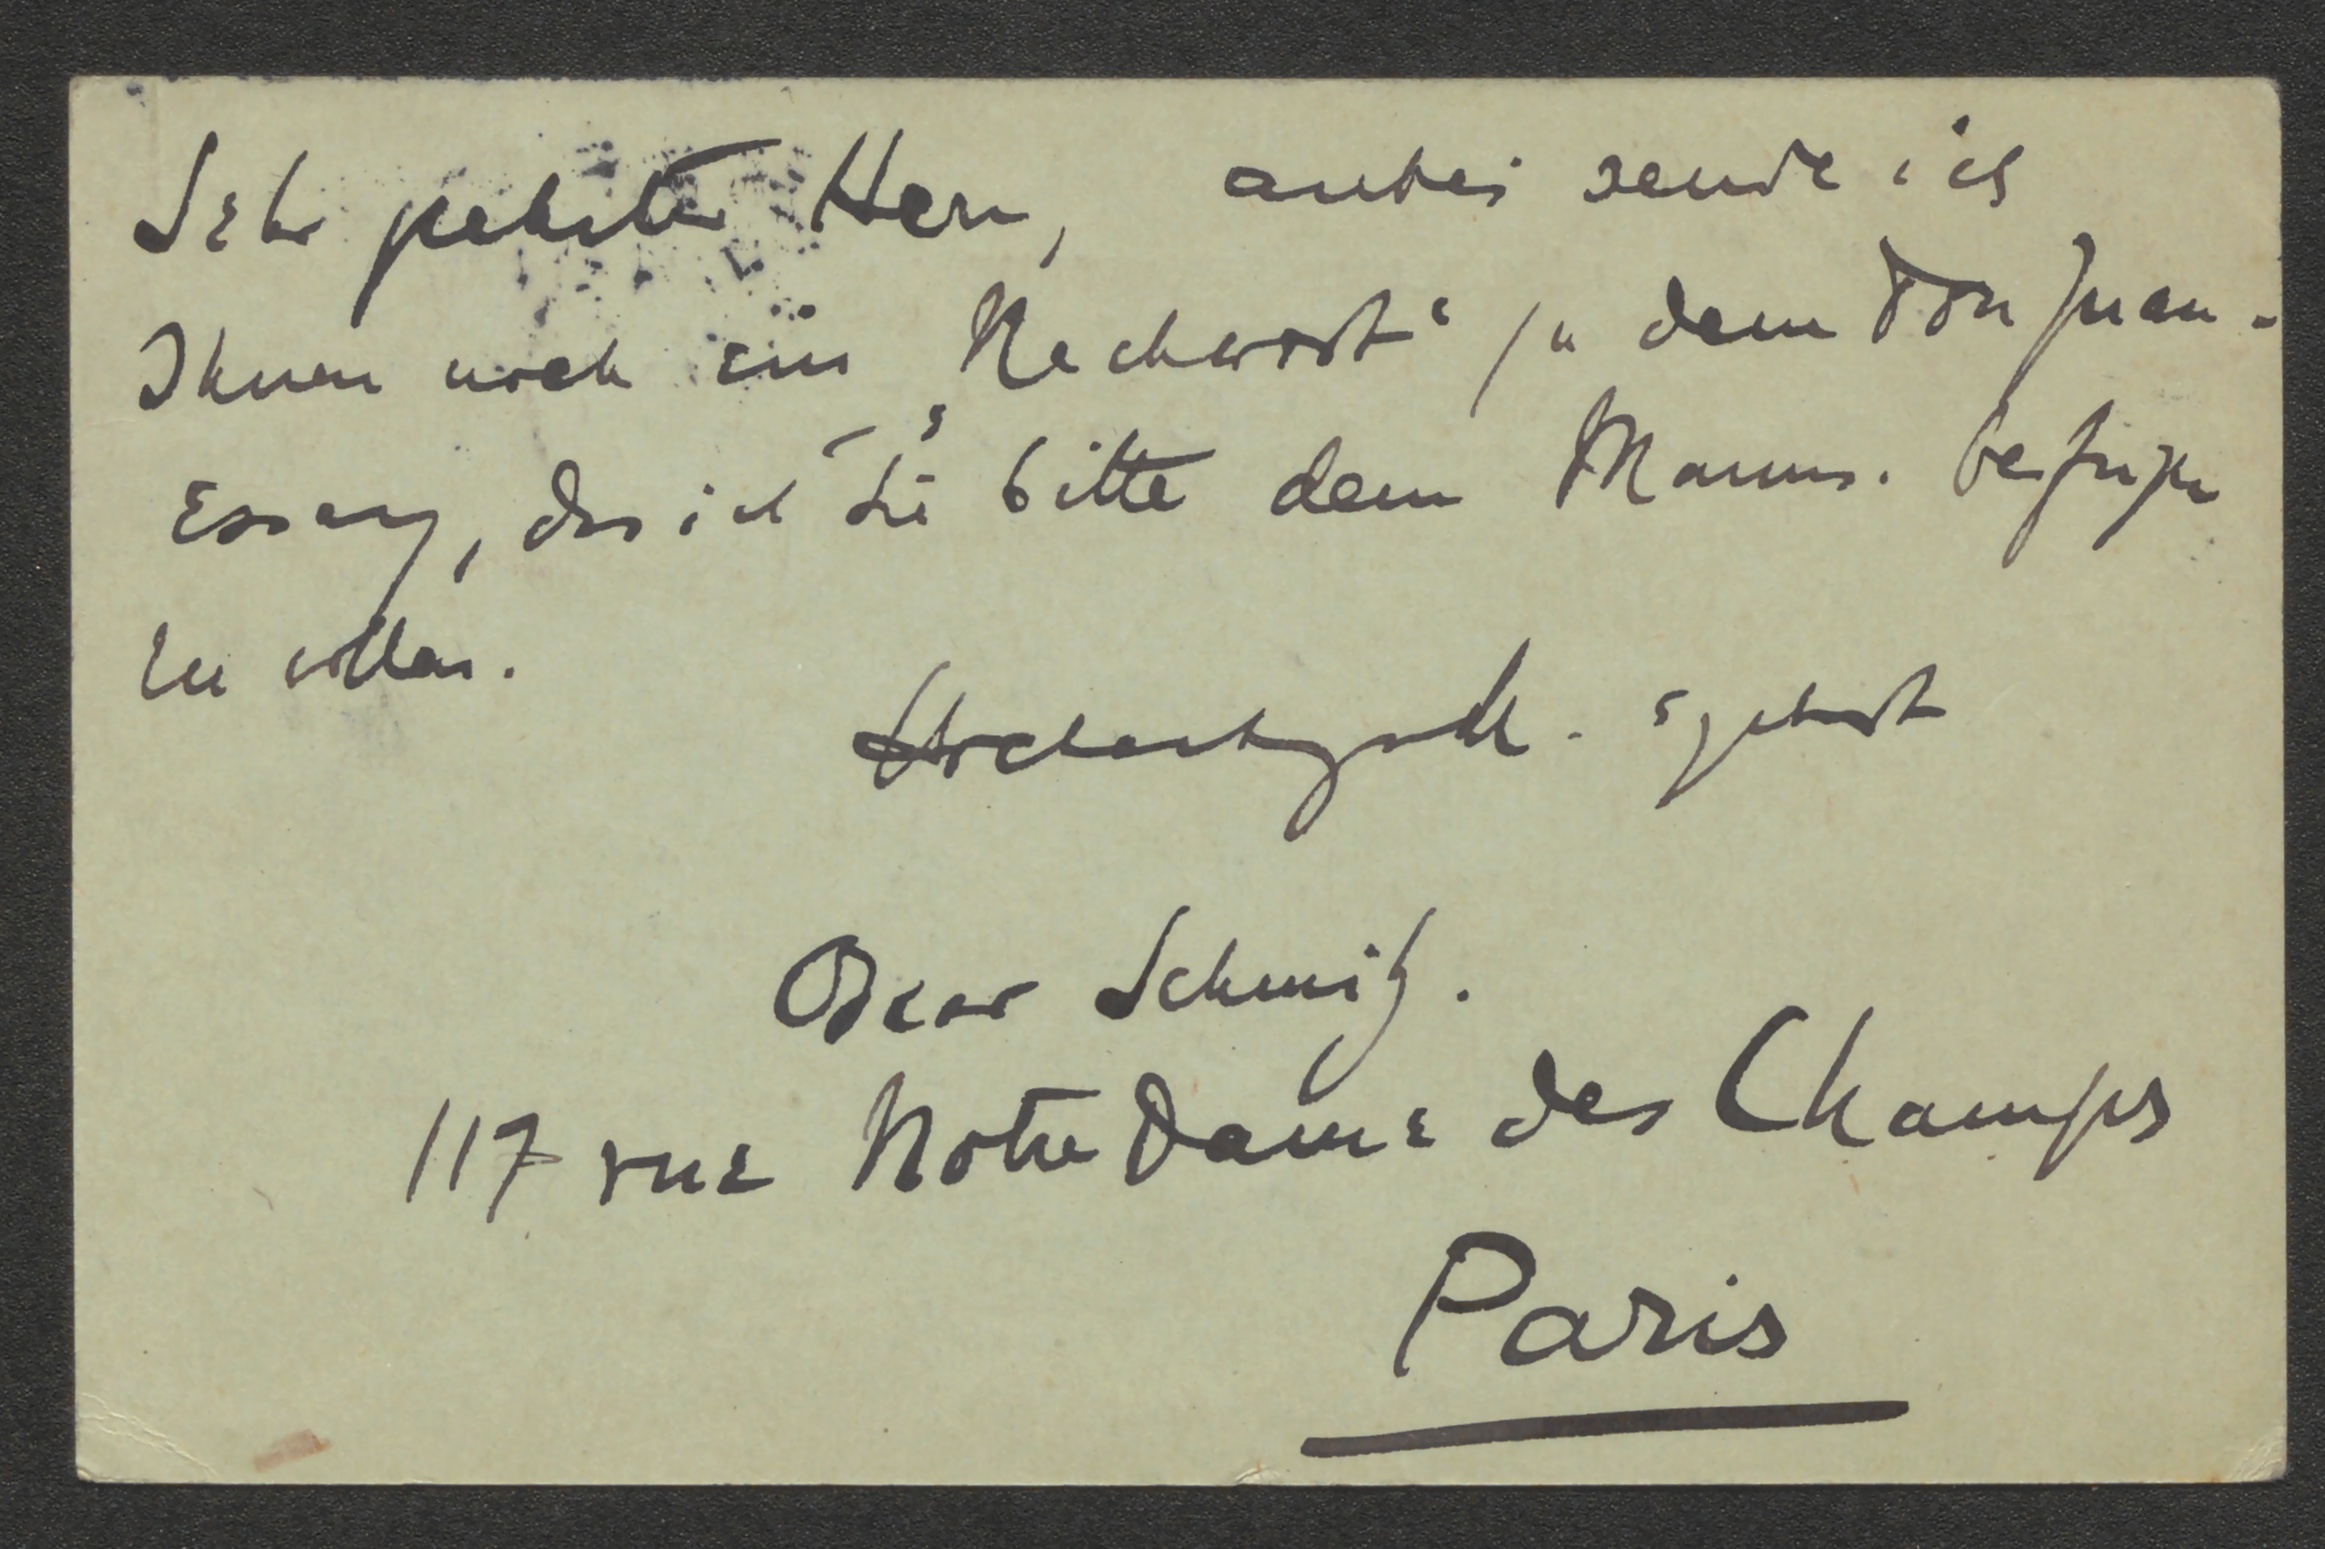 Sehr geehrter Herr, anbei sende ich
Ihnen noch ein „Nachwort“ zu dem Don Juan-
Essay, das ich Sie bitte dem Manus. beifügen
zu wollen.
Hochachtungsvoll. ergebenst
Oscar Schmitz.
117 rue Notre Dame des Champs
Paris